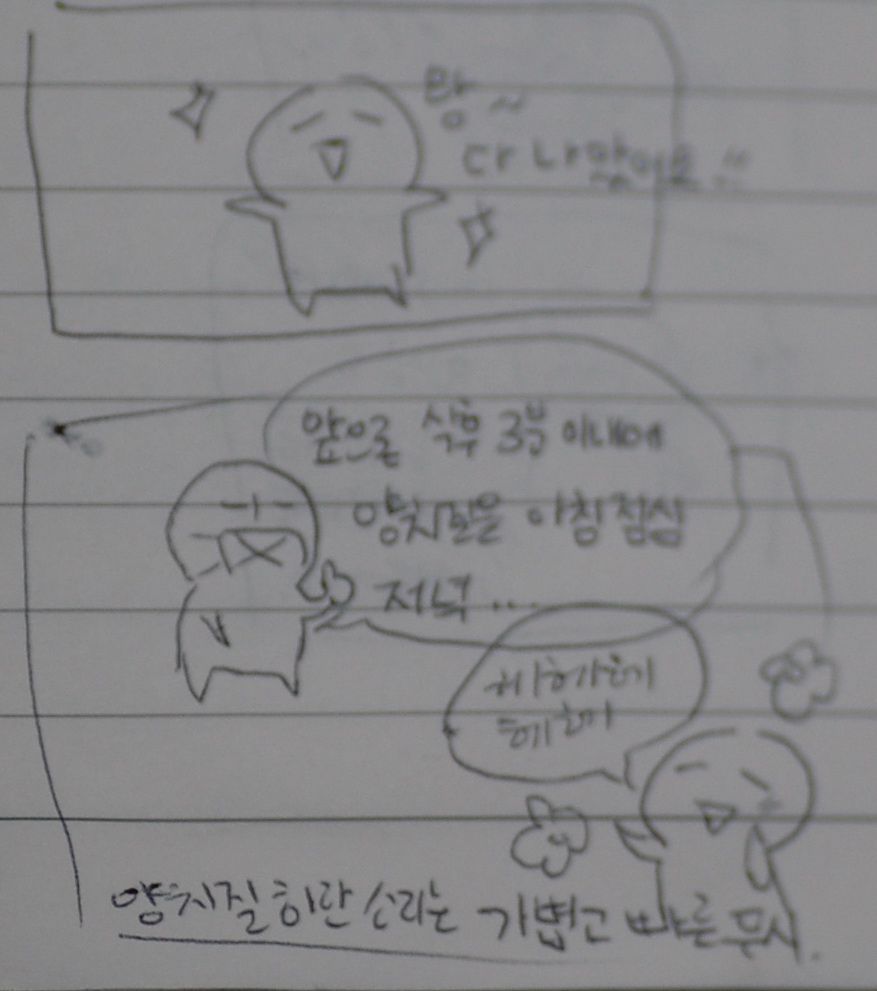 짱~
다 나았어요!!
앞으로 식후 3분 이내에
양치질을 아침점심
저녁...
헤헤헤
헤헤
양치질 하란 소리는 가볍고 빠른 무시.